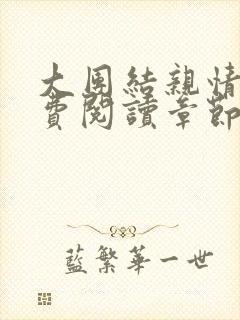 大團結親情
費閱讀章節
藍繁華一世